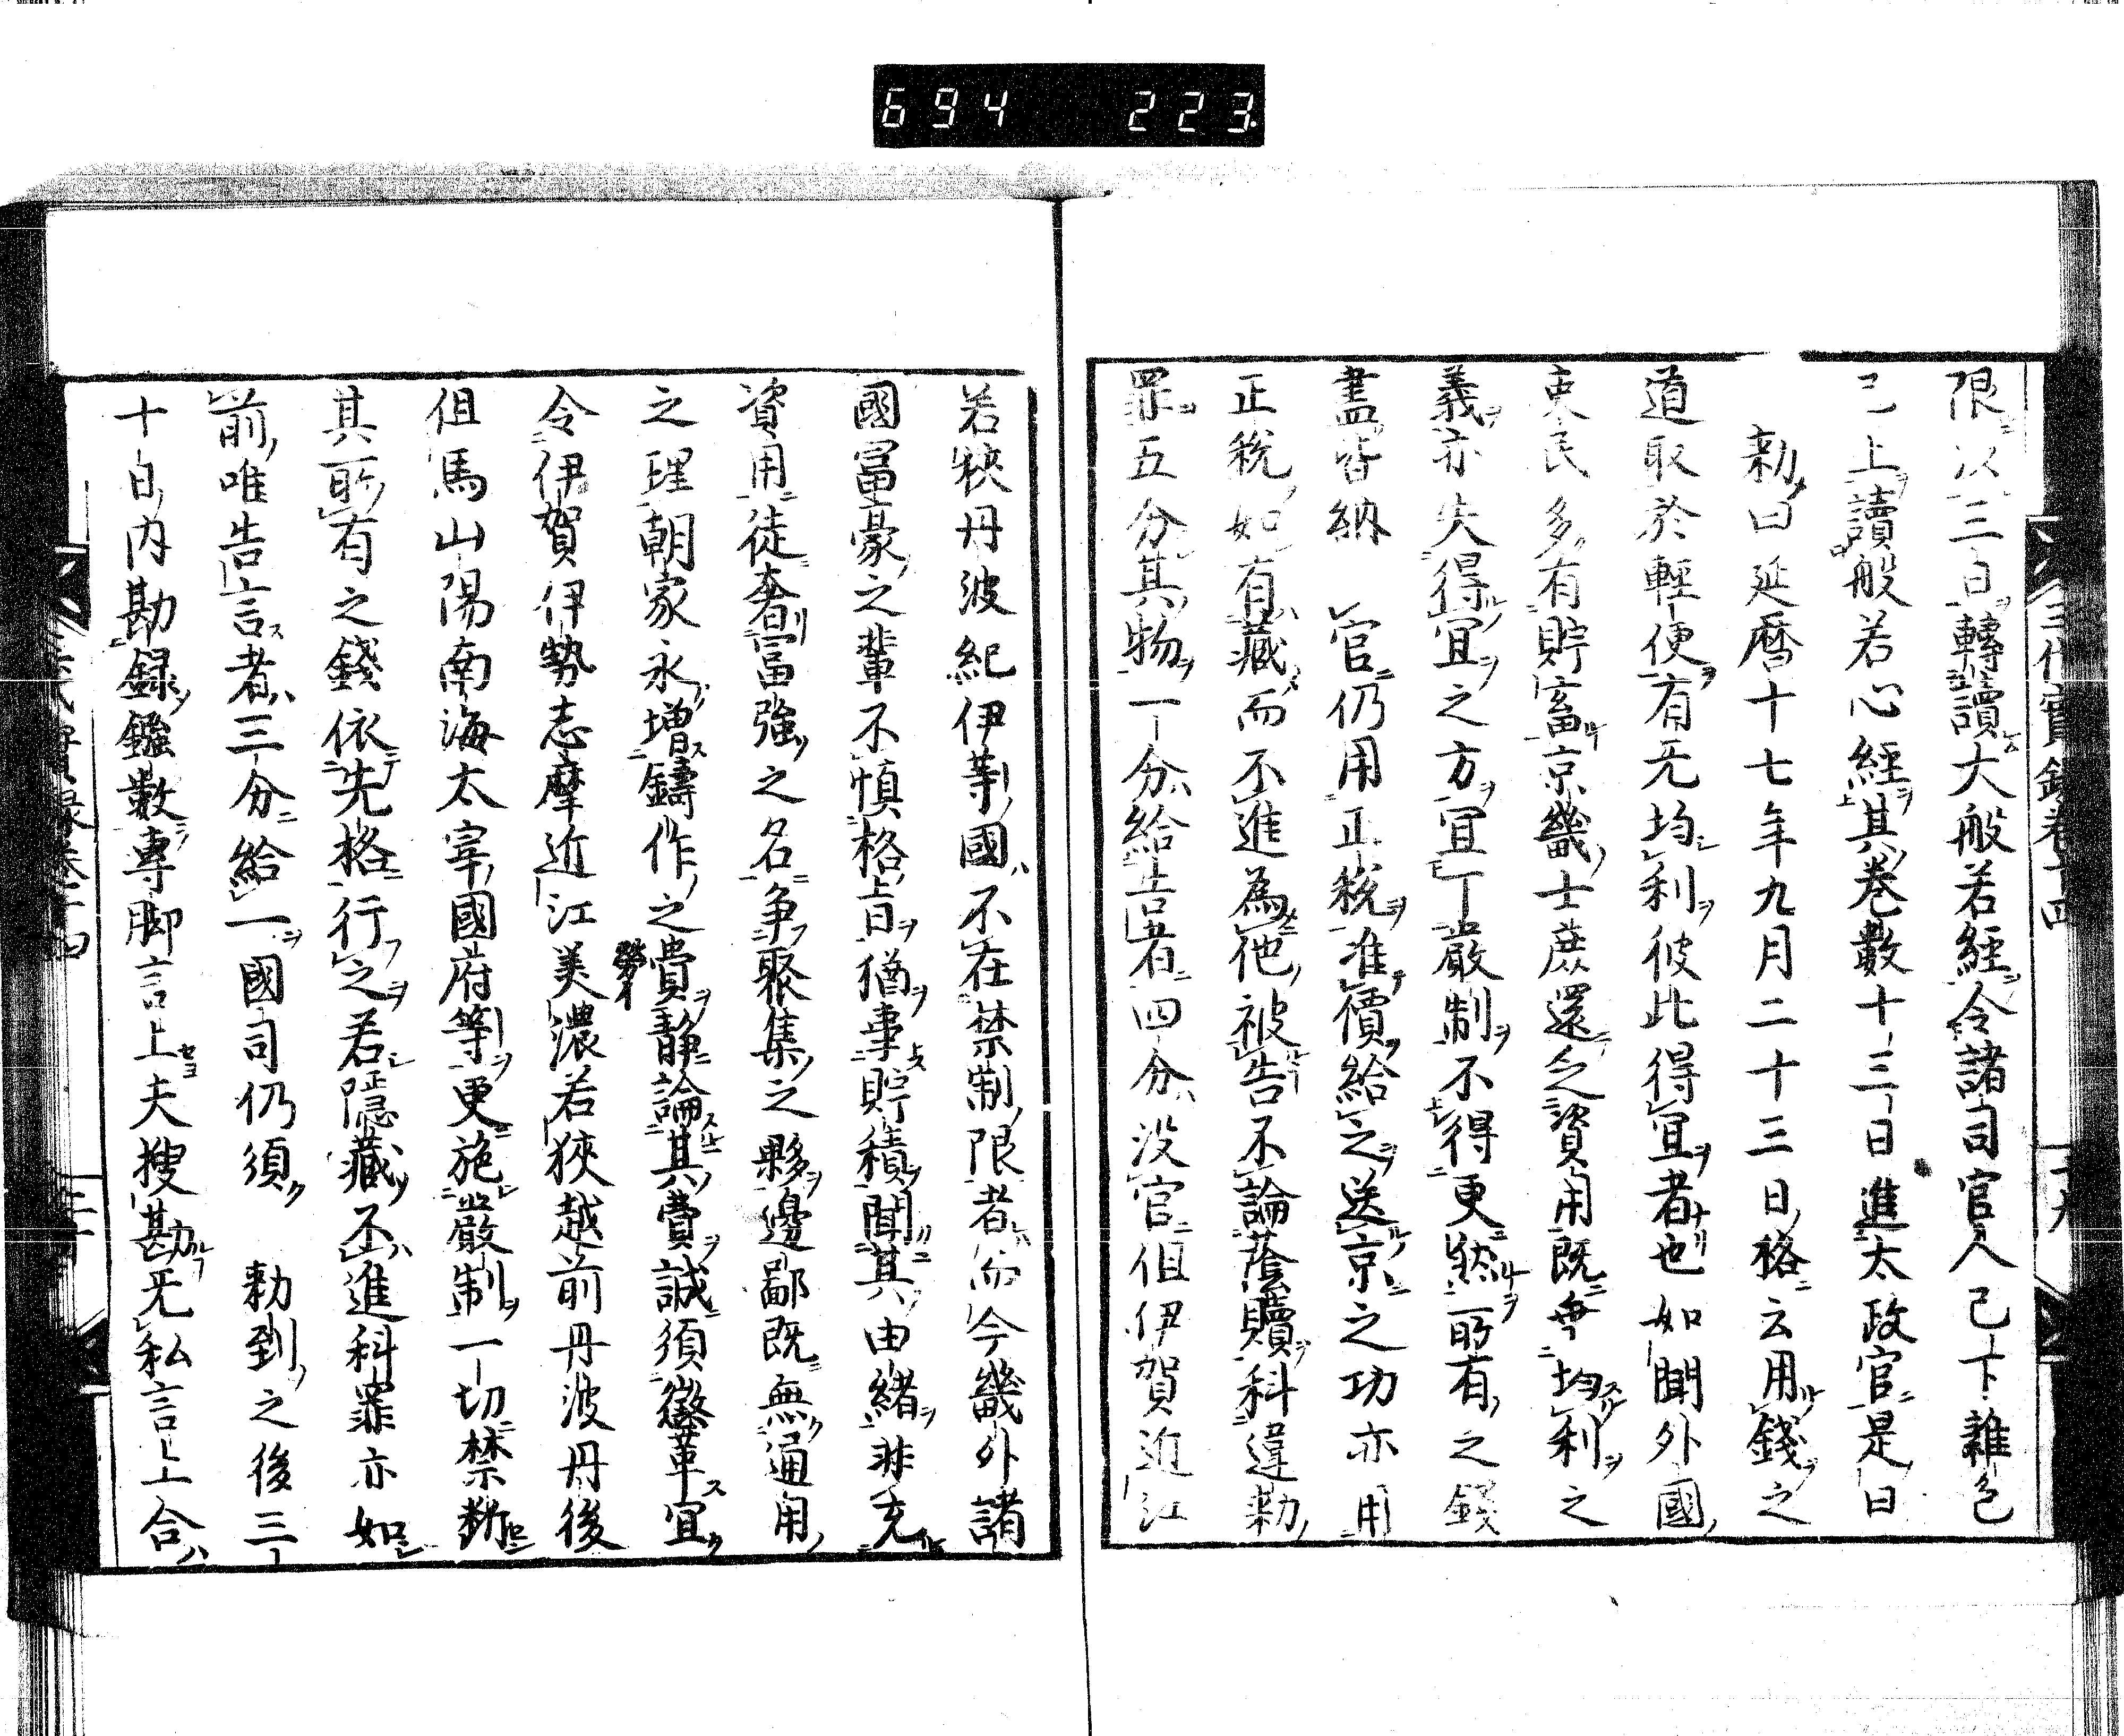 694 223
限以三日轉讀大般若經令諸司官人已下雜色
已上讀般若心經其巻數十三日進太政官是日
勅曰延暦十七年九月二十三日格云用錢之
道取於輕便有无均利彼此得宜者也如聞外國
吏民多有貯畜京畿士庶還乏資用既無均利之
義亦失得宜之方宜丁嚴制不得更然所有之錢
盡皆納 官仍用正税准價給之送京之功亦用
正税如有藏而不進為他被告不論蔭贖科違勅
罪五分其物一分給告者四分没官但伊賀近江
若狹丹波紀伊等國不在禁制限者而今畿外諸
國冨豪之輩不愼格旨猶事貯積聞其由緒非充
資用徒奢冨強之名争聚集之夥邊鄙既無通用
之理朝家永増鑄作之費靜論其費誠須懲革宜
勞イ
令伊賀伊勢志摩近江美濃若狹越前丹波丹後
但馬山陽南海太宰國府等更施嚴制一切禁斷
其所有之錢依先格行之若隱藏不進科罪亦如
前唯告言者三分給一國司仍須 勅到之後三
十日内勘録鑑數專脚言上夫搜勘无私言上合